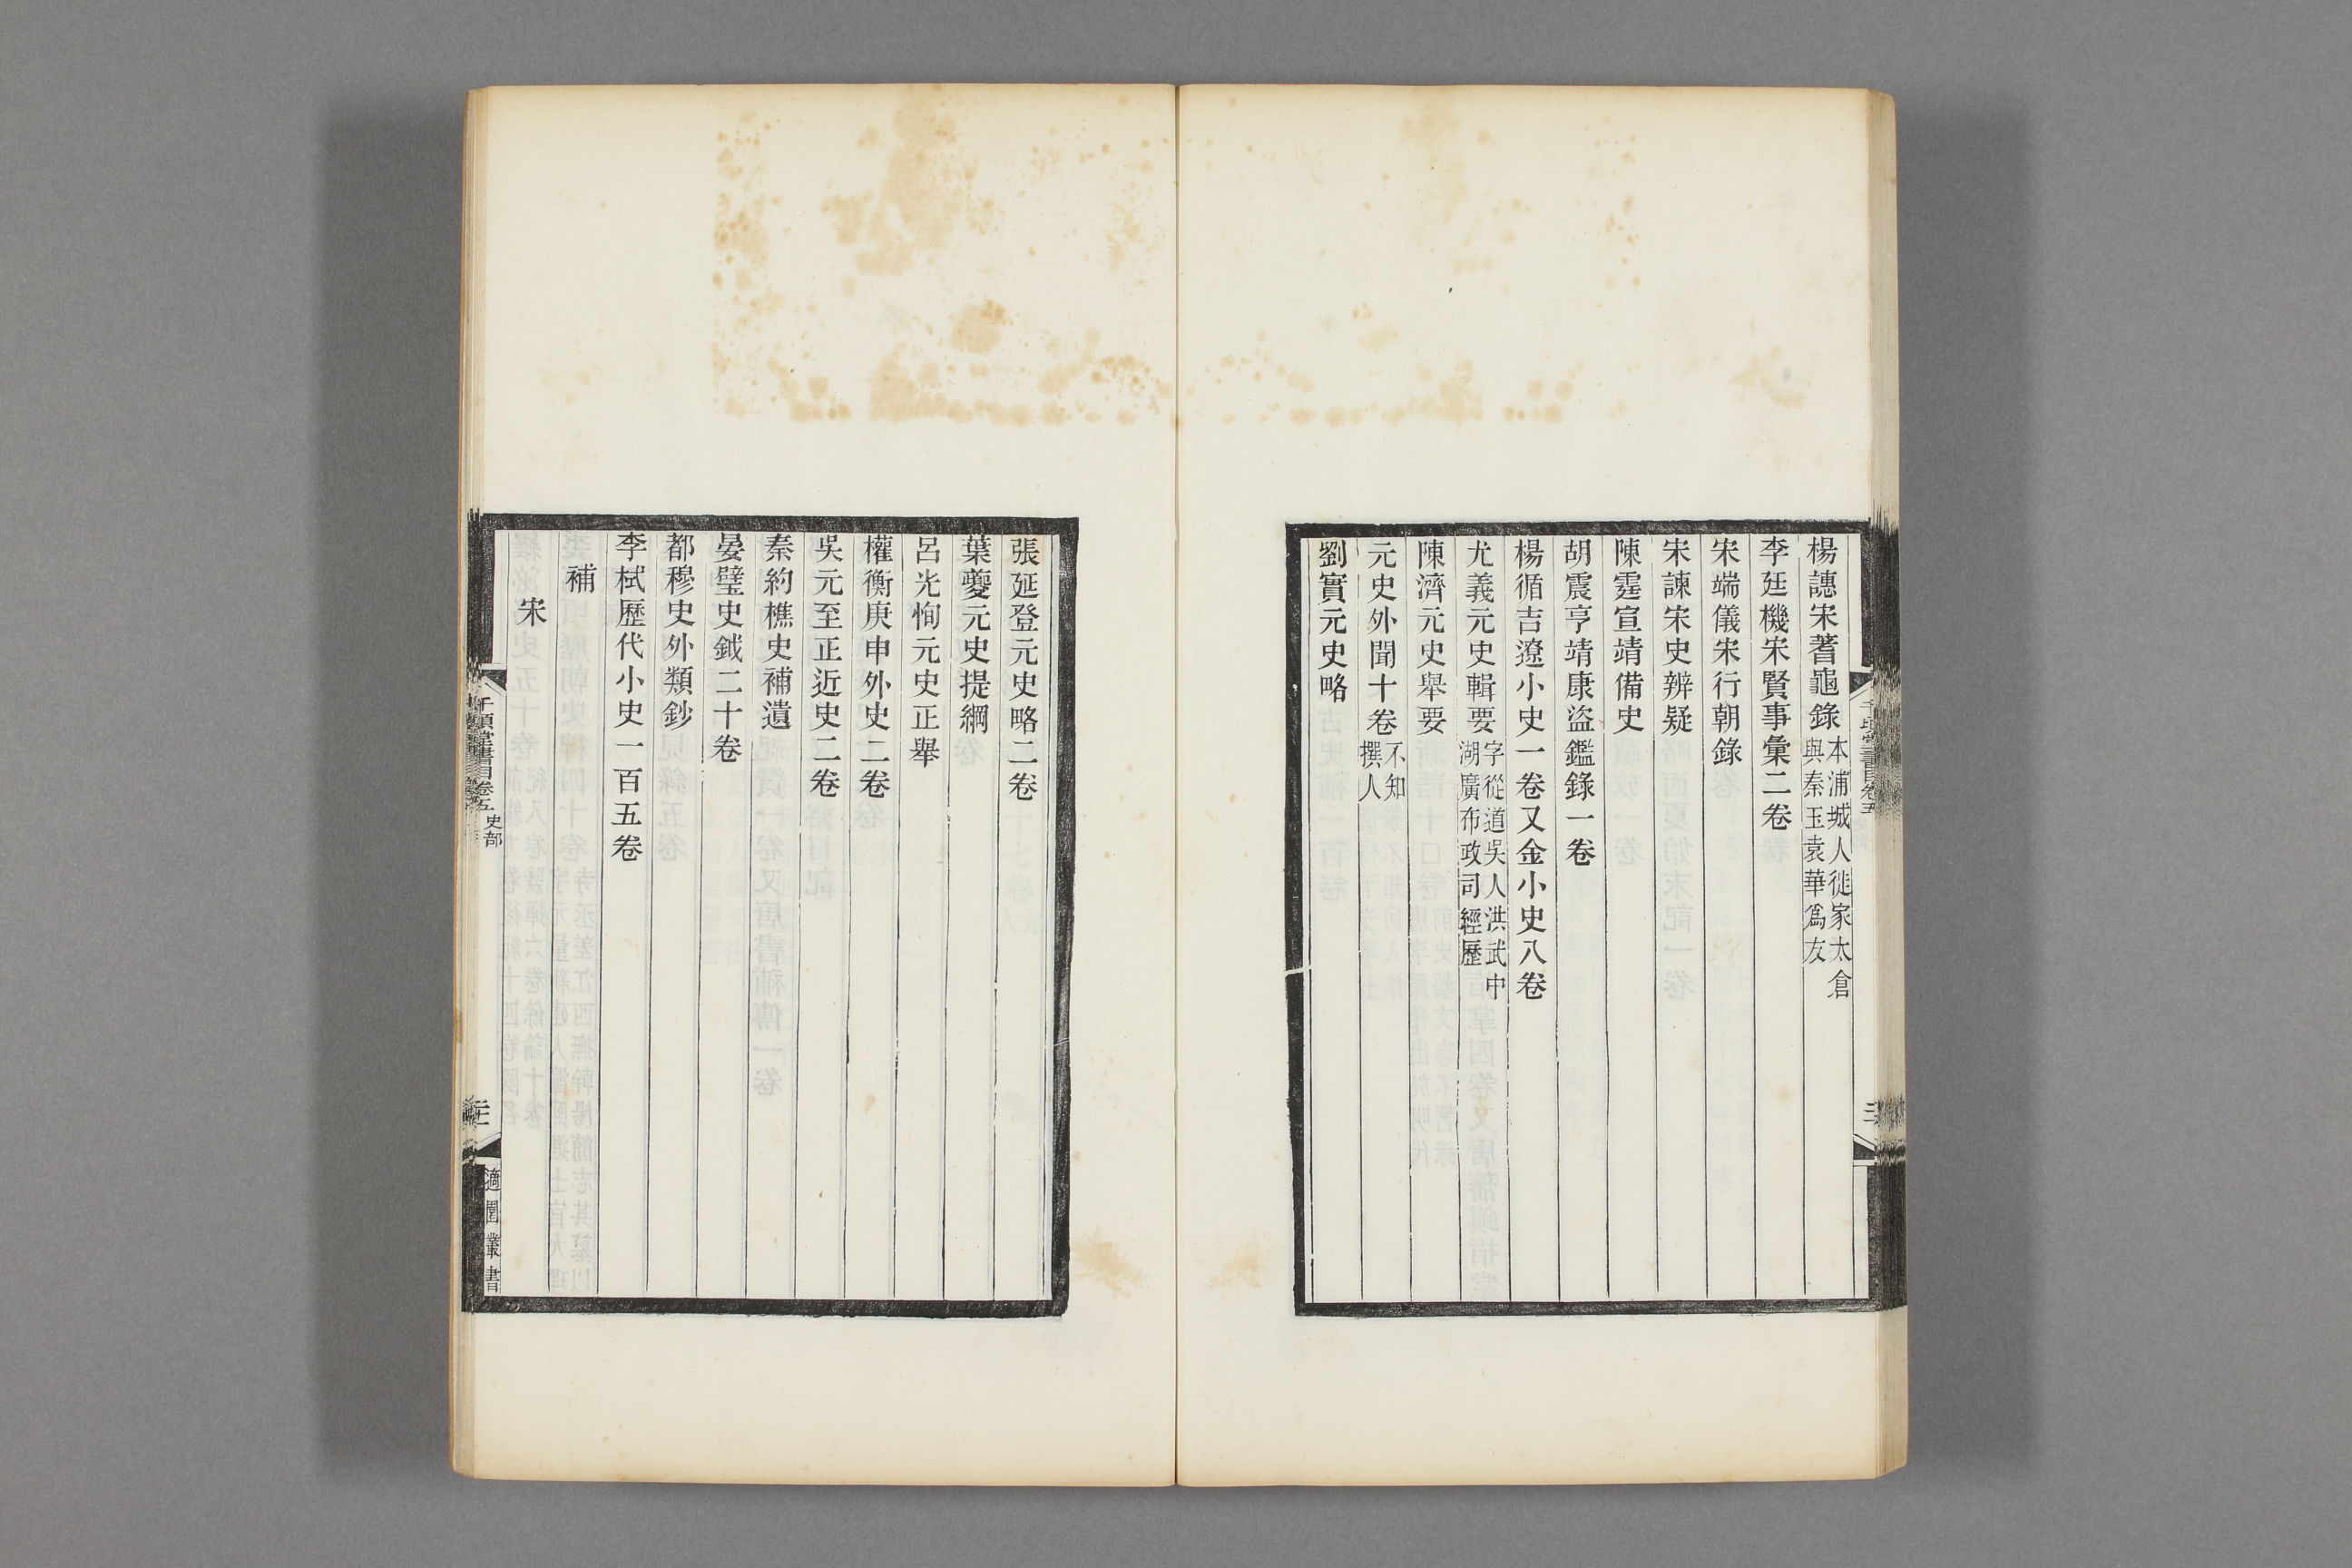 楊譓宋蓍龜錄本浦城人徙家太倉與秦玉袁華爲友
李廷機宋賢事彙二卷
宋端儀宋行朝錄
宋諫宋史辨疑
陳霆宣靖備史
胡震亨靖康盜鑑錄一卷
楊循吉遼小史一卷又金小史八卷
尤義元史輯要字從道吳人洪武中湖廣布政司經歷
陳濟元史舉要
元史外聞十卷不知撰人
劉實元史略
張延登元史略二卷
葉夔元史提綱
呂光恂元史正舉
權衡庚申外史二卷
吳元至正近史二卷
秦約樵史補遺
晏璧史鉞二十卷
都穆史外類鈔
李栻歷代小史一百五卷
補
宋
千頃堂書目卷五 史部
適園叢書